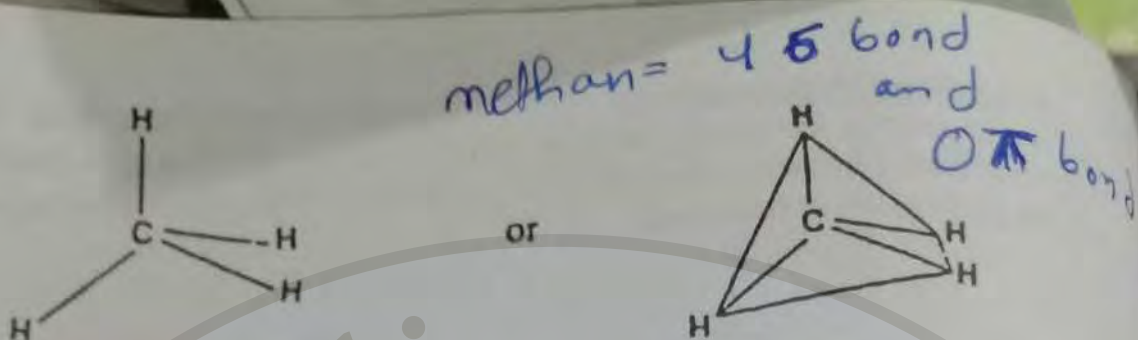 methan= 4 б bond
and
0 π bond
H
C
H
H
H
or
H
C
H
H
H